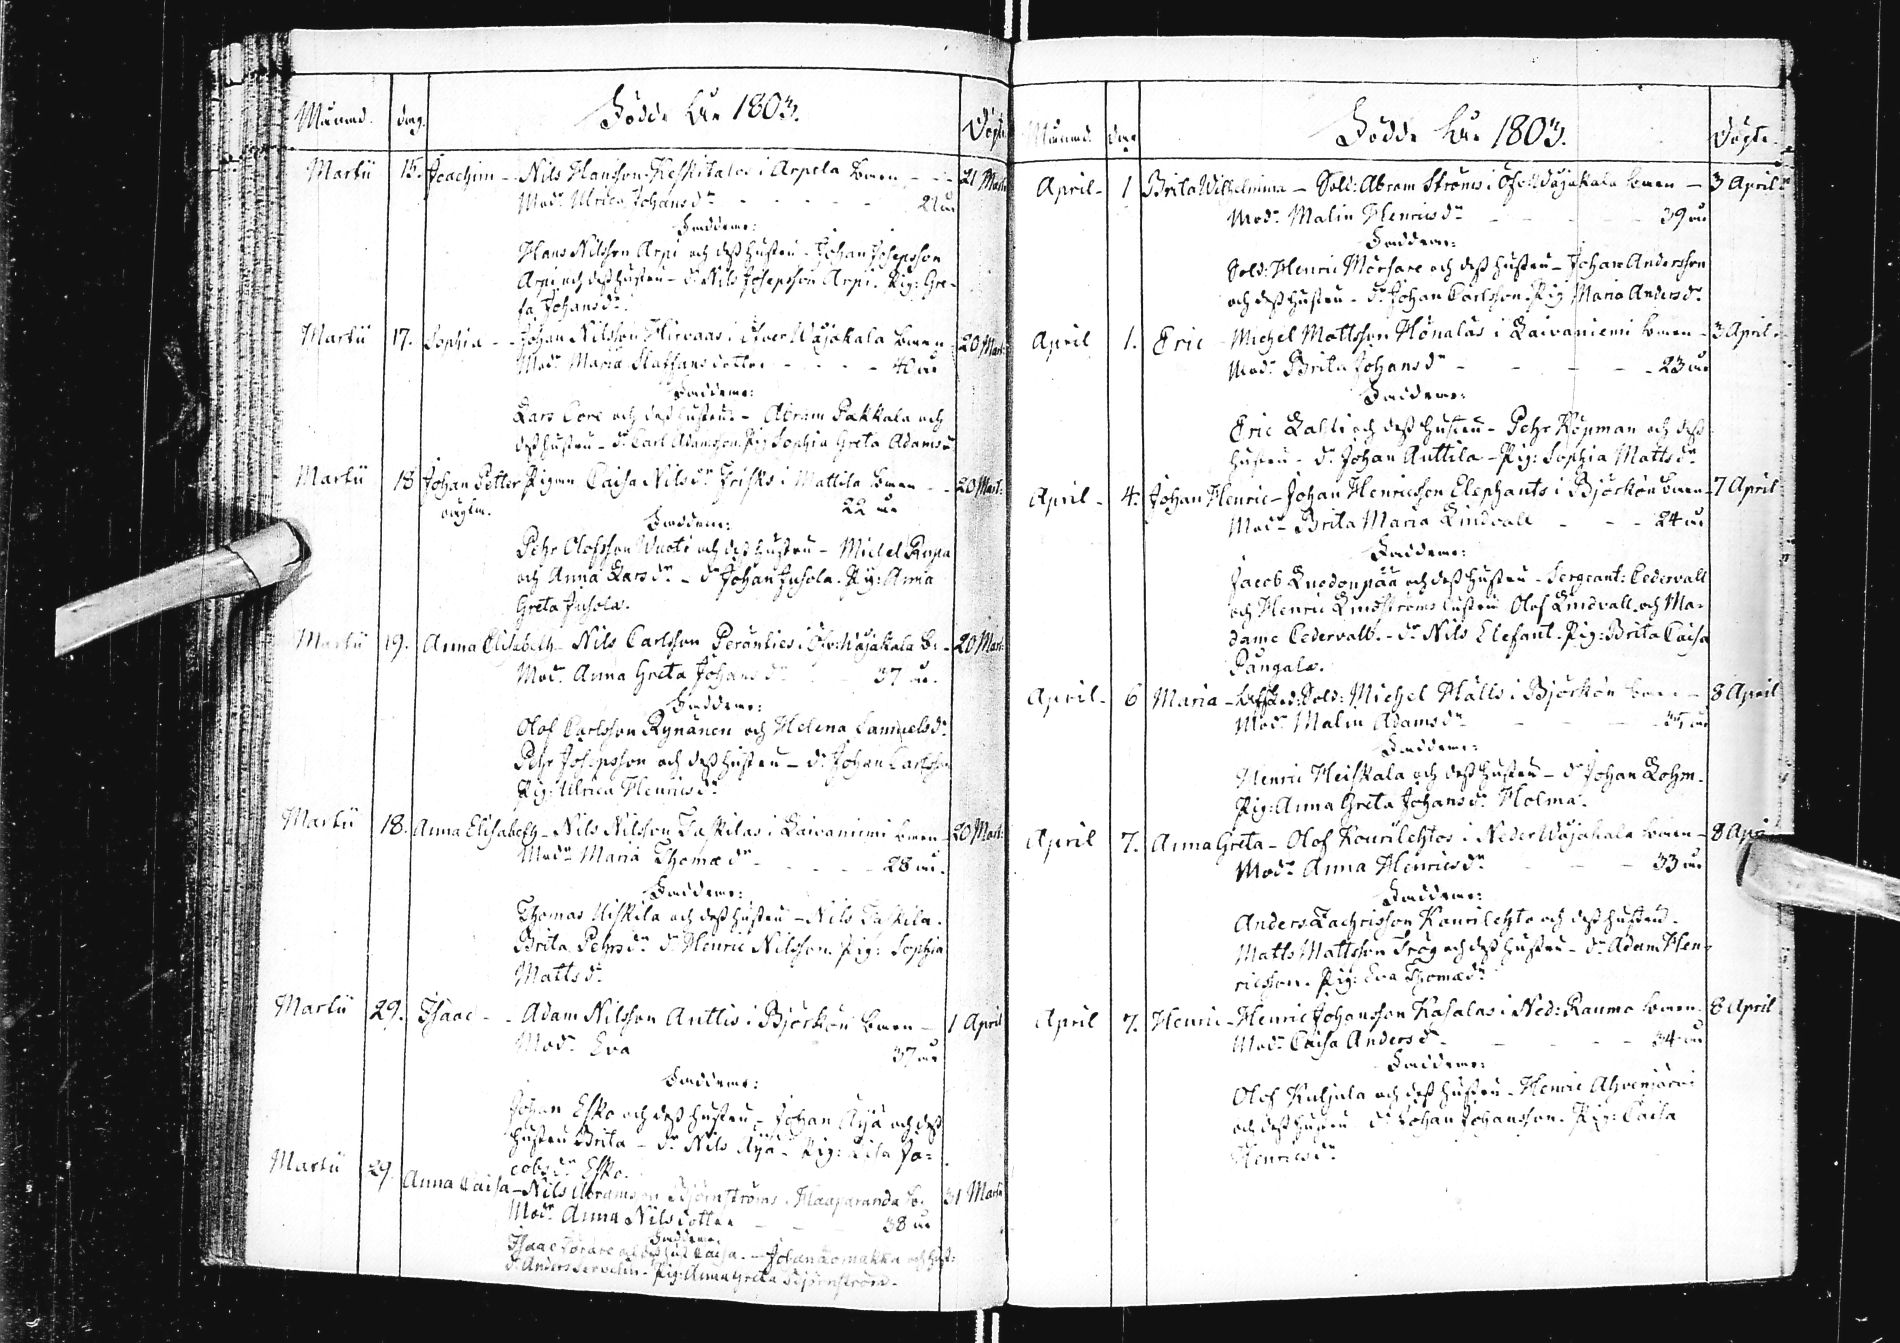 Månad. dag. Födde År 1803. Döpte
Martii 15. Joachim - Nils Hansson Keskitalos i Arpela barn - 21 Martii
Modr Ulrica Johansdr - 21 år
Faddrar:
Hans Nilsson Arpi och dess hustru - Johan Josepsson
Arpi och dess hustru - dr Nils Josepsson Arpi. Pig: Gre-
ta Johansdr.
Martii 17. Sophia - Johan Nilsson Hirvaas i Öfver Wojakala barn 20 Mart:
Modr Maria Staffansdotter - 40 år
Faddrar:
Lars Core och dess hustru - Abram Pakkala och
dess hustru - dr Carl Adamsson. Pig Sophia Greta Adamsd
Martii 18 Johan Petter Pigan Caisa Nilsdr Frisks i Mattila barn - 20 Mart:
oägta. 22 år
Faddrar:
Pehr Olofsson Wuoti och dess hustru - Michel
och Anna Larsdr - dr Johan Juhola. Pig: Anna
Greta Juhola.
Martii 19. Anna Elisabeth - Nils Carlsson i Öfv: Wojakala b: - 20 Mart:
Modr Anna Greta Johansdr 37 år.
Faddrar:
Olof Carlsson Kynänen och Helena Samuelsdr
Pehr Josepsson och dess hustru - dr Johan Carlsson
Pig: Ulrica Henricsdr
Martii 18. Anna Elisabeth - Nils Nilsson Taskilas i Laivaniemi barn - 20 Mart:
Modr Maria Thomædr - 28 år.
Faddrar:
Thomas Uiskila och dess hustru - Nils Taskila.
Brita Pehrsdr dr Henric Nilsson. Pig: Sophia
Mattsdr
Martii 29. Isaac - Adam Nilsson Anttis i Björkön barn - 1 April
Modr Eva 37 år
Faddrar:
Johan Esko och dess hustru - Johan Äyä och dess
hustru Brita - dr Nils Äyä - Pig: Lisa Ja-
cobsdr Esko.
Martii 29. Anna Caisa - Nils Abramsson Björnströms i Haaparanda b: 31 Martii
Modr Anna Nilsdotter - 38 år
Faddrar:
Isaac och dess hust Caisa. - Johan Lomakka och hust:
dr Anders Servelin - Pig: Anna Greta Björnström -
Månad. dag Födde År 1803. Döpte.
April - 1 Brita Wilhelmina - Sold: Abram Ströms i Öf: Wojakala barn - 3 April
Modr Malin Henricsdr - 39 år
Faddrar:
Sold: Henric Morsare och dess hustru - Johan Andersson
och dess hustru - dr Johan Carlsson. Pig Maria Andersdr
April 1. Eric - Michel Mattsson Hönalas i Laivaniemi barn - 3 April
Modr Brita Johansdr - 23 år
Faddrar:
Eric Lalli och dess hustru - Pehr Köpman och dess
hustru - dr Johan Anttila - Pig: Sophia Mattsdr
April - 4. Johan Henric - Johan Henricsson Elephants i Björkön barn - 7 April
Modr Brita Maria Lindvall - 24 år
Faddrar:
Jacob Luodonpää och dess hustru - Sergeant: Cedervall
och Henric Lindströms hustru Olof Lindvall och Ma-
dame Cedervall. - dr Nils Elefant. Pig: Brita Caisa
Pangala.
April - 6 Maria - Sold: Michel Hälls i Björkön barn - 8 April
Modr Malin Adamsdr - 35 år
Faddrar:
Henric Heiskala och dess hustru - dr Johan Bohm.
Pig: Anna Greta Johansdr Holma.
April 7. Anna Greta - Olof Kourilehtos i Neder Wojakala barn - 8 Apr
Modr Anna Henricsdr - 33 år
Faddrar:
Anders Zachrisson Kaurilehto och dess hustru -
Matts Mattsson Frög och dess hustru - dr Adam Hen-
ricsson. Pig: Eva Thomædr
April 7. Henric - Henric Johansson Kasalas i Ned: Raumo barn - 8 April
Modr Caisa Andersdr - 34 år
Faddrar:
Olof Kuhjala och dess hustru - Henric Ahvenjärvi
och dess hustru dr Johan Johansson. Pig: Caisa
Henricsdr